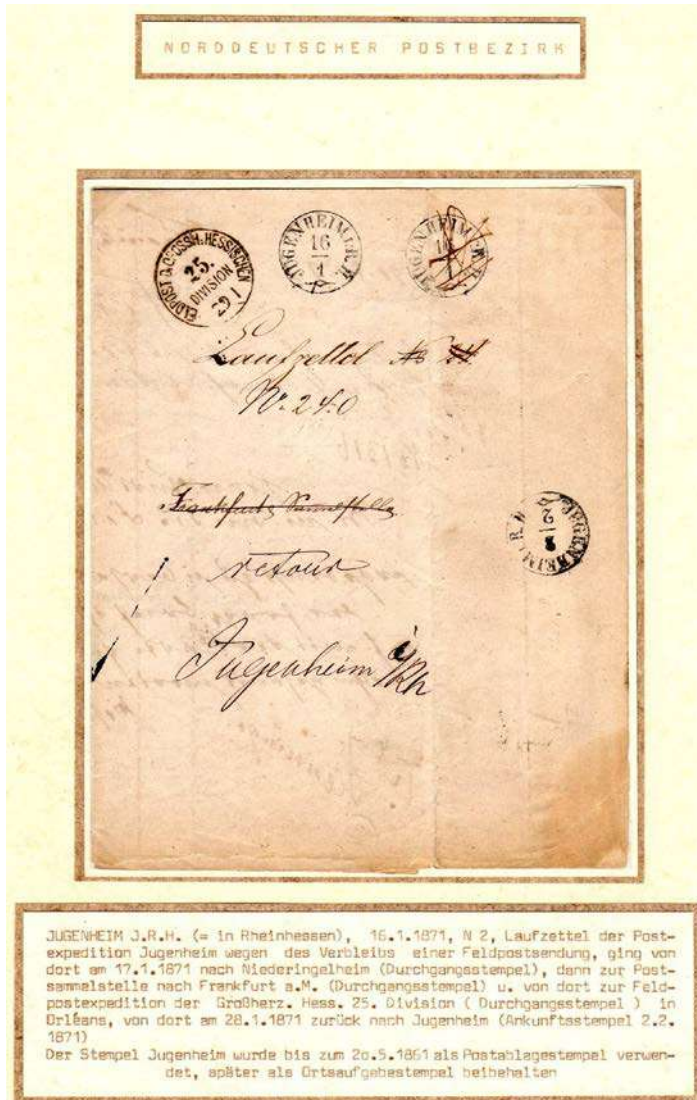 NORDDEUTSCHER POSTBEZIRK
ELDPOST D. GROSSH. HESSISCHEN
25.
DIVISION
29 1
JUGENHEIM I.R.H.
16
1
JUGENHEIM I.R.H.
16
1
Laufzettel No
No. 240
Frankfurt Sammelstelle
JUGENHEIM I.R.H.
2
2
retour
Jugenheim i/Rh
JUGENHEIM J.R.H. (= in Rheinhessen), 16.1.1871, N 2, Laufzettel der Post-
expedition Jugenheim wegen des Verbleibs einer Feldpostsendung, ging von
dort am 17.1.1871 nach Niederingelheim (Durchgangsstempel), dann zur Post-
sammelstelle nach Frankfurt a.M. (Durchgangsstempel) u. von dort zur Feld-
postexpedition der Großherz. Hess. 25. Division ( Durchgangsstempel ) in
Orléans, von dort am 28.1.1871 zurück nach Jugenheim (Ankunftsstempel 2.2.
1871)
Der Stempel Jugenheim wurde bis zum 20.5.1861 als Postablagestempel verwen-
det, später als Ortsaufgabestempel beibehalten